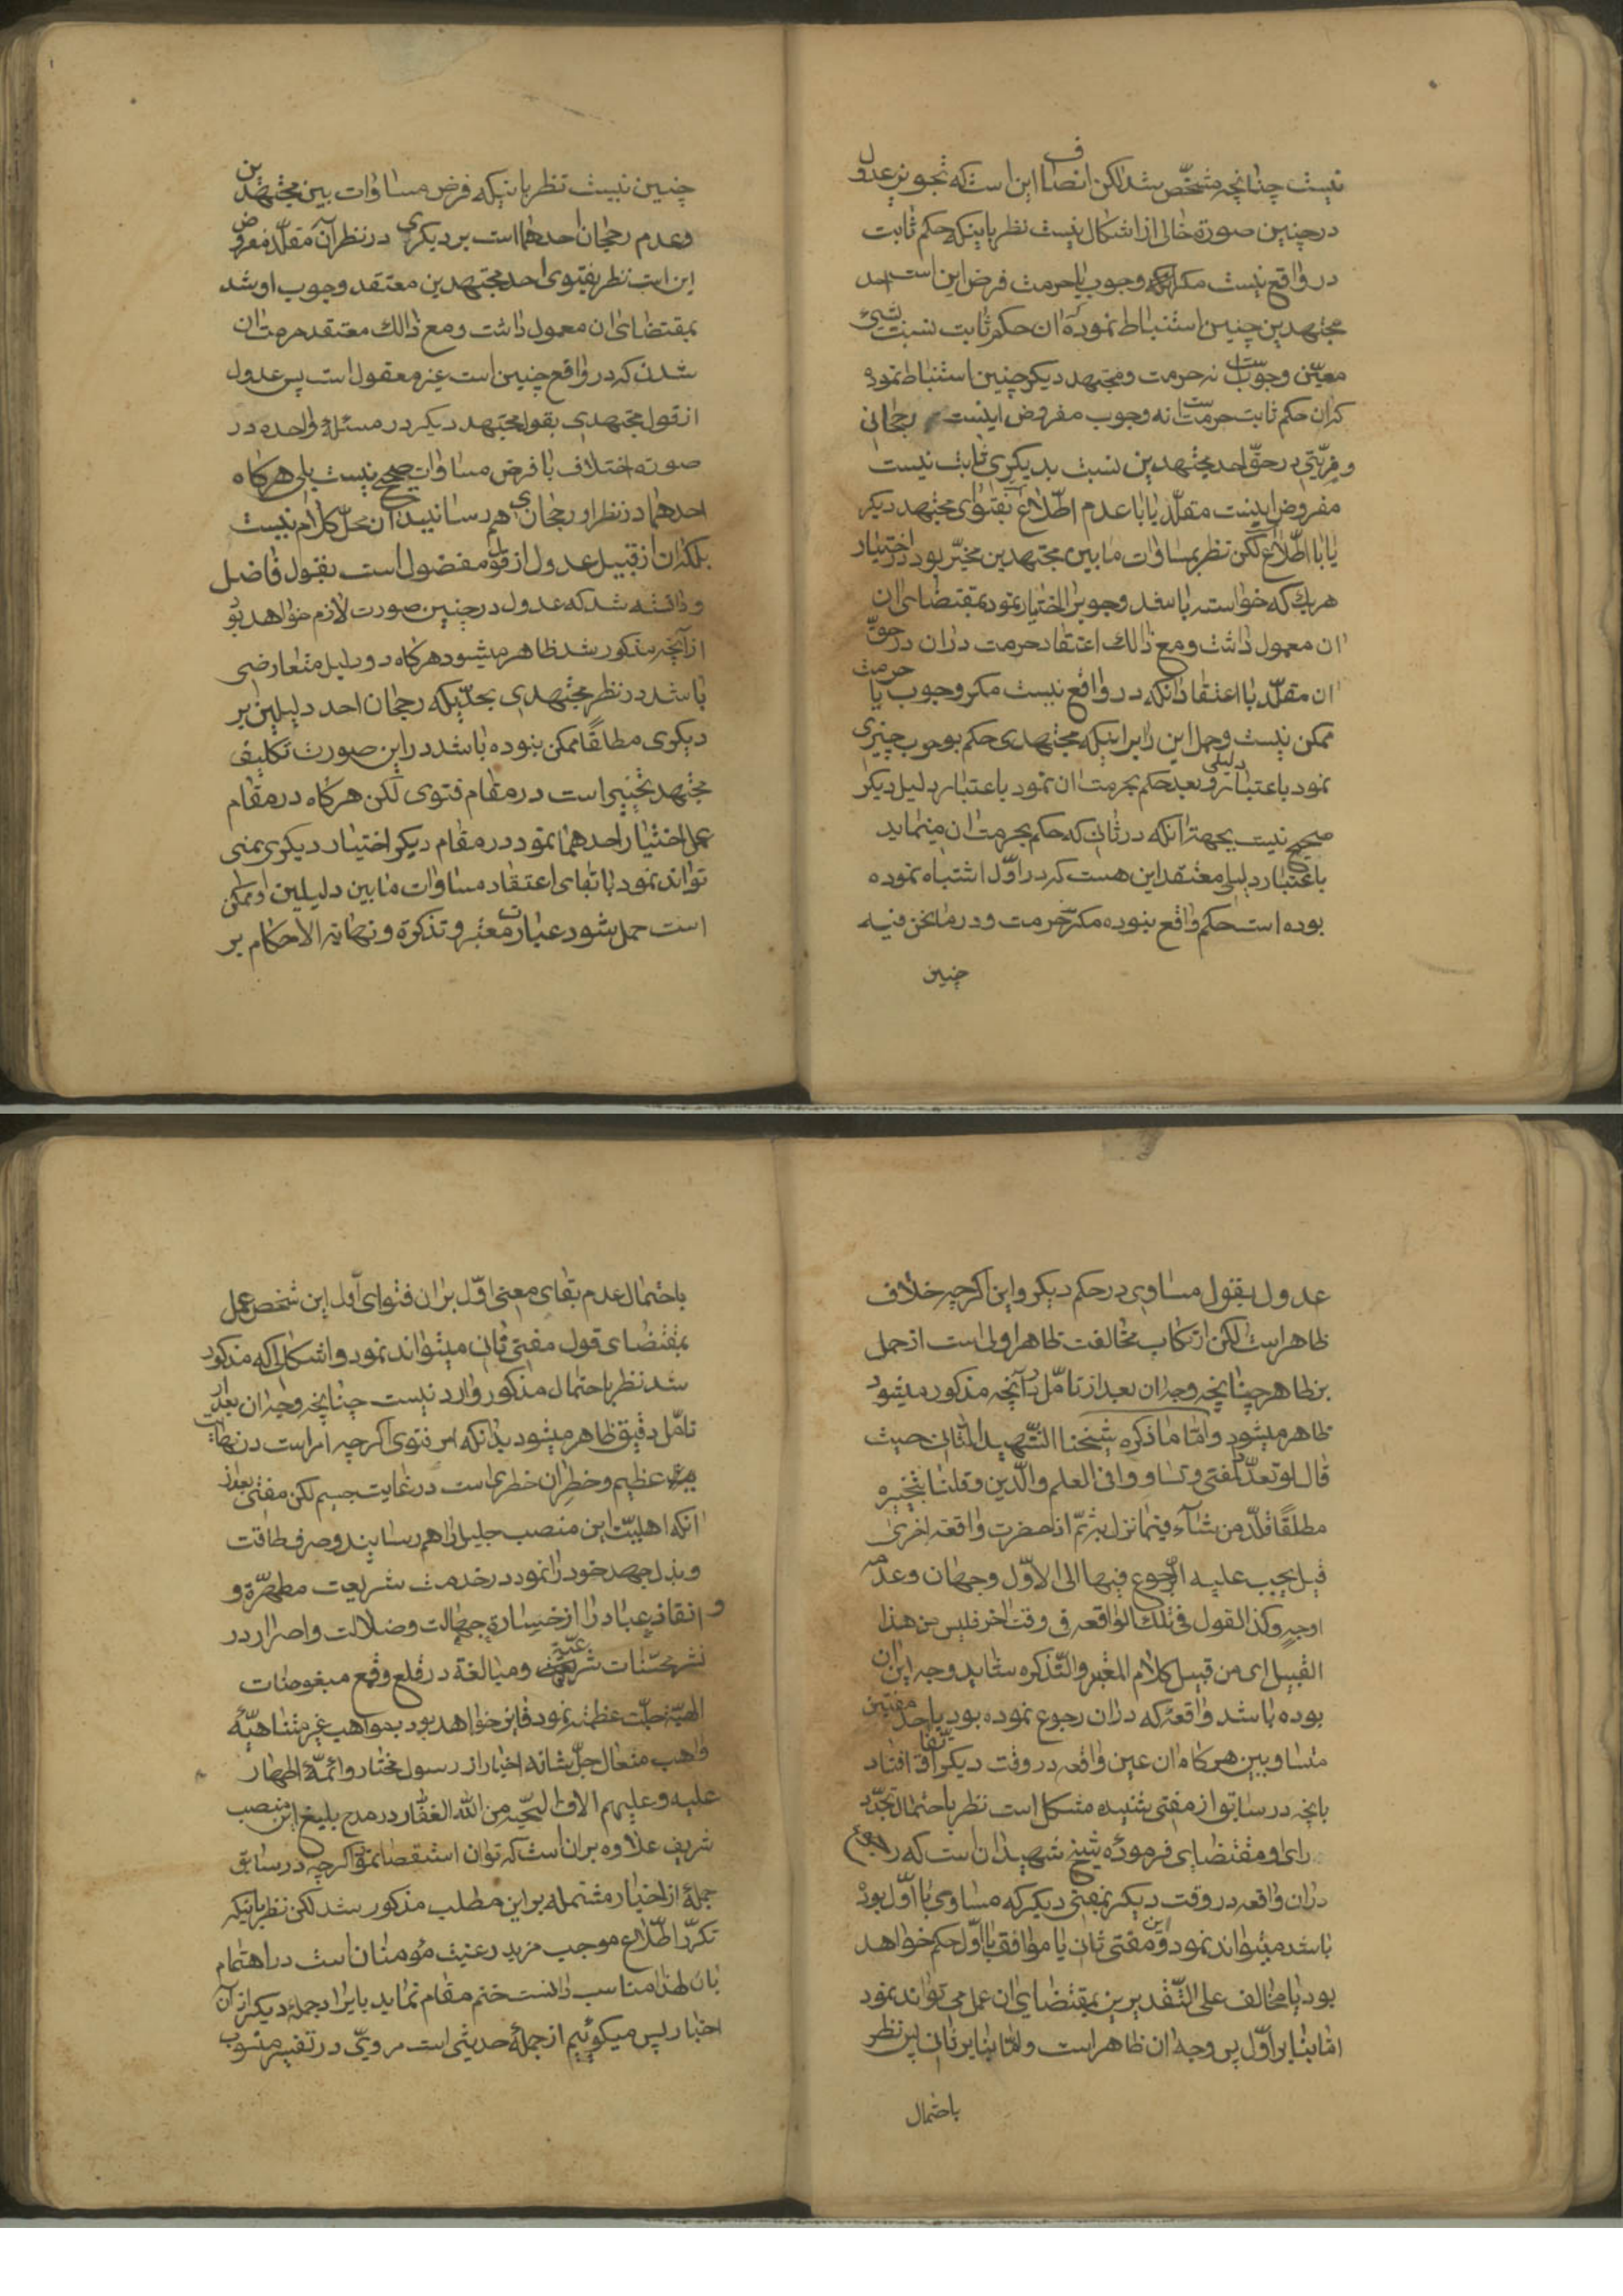 نیست چنانچه مشخّص شد لکن انصاف این است که تجویز عدول
در چنین صورة خالی از اشکال نیست نظر باینکه حکم ثابت
در واقع نیست مکر وجوب یا حرمت فرض این است احد
مجتهدین چنین استنباط نموده که ان حکم ثابت نسبت بشیء
معیّن وجوبست نه حرمت و مجتهد دیکر چنین استنباط نموده
که ان حکم ثابت حرمتست نه وجوب مفروض اینست رجحانی
و مزیّتی در حقّ احد مجتهدین نسبت بدیکری ثابت نیست
مفروض اینست مقلّد یا با عدم اطّلاع بفتوای مجتهد دیکر
یا با اطّلاع لکن نظر بمساوات ما بین مجتهدین مخیّر بود در اختیار
هر یك که خواسته باشد وجوبرا اختیار نمود بمقتضای ان
ان معمول داشت و مع ذالك اعتقاد حرمت دران در حقّ
ان مقلّد با اعتقاد انکه در واقع نیست مکر وجوب یا حرمت
ممکن نیست وحمل این را بر اینکه مجتهدی حکم بوجوب چیزی
نمود باعتبار دلیلی و بعد حکم بحرمت ان نمود باعتبار دلیل دیکر
صحیح نیست بجهتر آنکه در ثانی که حکم بحرمت ان مینماید
باعتبار دلیلی معتقد این هست که در اوّل اشتباه نموده
بوده است حکم واقع نبوده مکر حرمت و در ما نحن فیه
چنین
چنین نیست نظر باینکه فرض مساوات بین مجتهدین
وعدم رجحان احدهما است بر دیکری در نظر آن مقلّد مفروض
این است نظر بفتوی احد مجتهدین معتقد وجوب او شد
بمقتضای ان معمول داشت و مع ذالك معتقد حرمت ان
شدن که در واقع چنین است غیر معقول است پس عدول
از قول مجتهدی بقول مجتهد دیکر در مسئلهٔ واحده در
صورة اختلاف با فرض مساوات صحیح نیست بلی هرکاه
احدهما در نظر او رجحانی هم رسانید ان محلّ کلام نیست
بلکه ان از قبیل عدول از قول مفضول است بقول فاضل
و دانسته شد که عدول در چنین صورت لازم خواهد بود
از آنچه مذکور شد ظاهر میشود هرکاه دو دلیل متعارضی
باشد در نظر مجتهدی بحدّیکه رجحان احد دلیلین بر
دیکری مطلقًا ممکن نبوده باشد در این صورت تکلیف
مجتهد تخییر است در مقام فتوی لکن هرکاه در مقام
عمل اختیار احدهما نمود در مقام دیکر اختیار دیکری نمی
تواند نمود با بقای اعتقاد مساوات ما بین دلیلین او ممکن
است حمل شود عبارت معتبر و تذکرة و نهایة الاحکام بر
عدول بقول مساوی در حکم دیکر و این اکرچه خلاف
ظاهر است لکن ارتکاب مخالفت ظاهر اولی است از حمل
بر ظاهر چنانچه وجه ان بعد از تامّل در آنچه مذکور میشود
ظاهر میشود وامّا ما ذکره شیخنا الشّهید الثانی حیث
قال لو تعدّد المفتی و تساووا فی العلم والدّین وقلنا بتخییره
مطلقًا قلّد من شاء فیما نزل به ثمّ اذا حضرت واقعة اخری
فهل یجب علیه الرّجوع فیها الی الاوّل وجهان وعدمه
اوجه وکذا القول فی تلك الواقعه فی وقت اخر فلیس من هذا
القبیل ای من قبیل کلام المعتبر والتّذکره شاید وجه این ان
بوده باشد واقعهٔ که دران رجوع نموده بود باحد مفتین
متساویین هرکاه ان عین واقعه در وقت دیکر اتّفاق افتاد
بانچه در سابق از مفتی شنیده مشکل است نظر باحتمال تجدّد
رای و مقتضای فرمودهٔ شیخ شهید ان است که رجوع
دران واقعه در وقت دیکر بمفتی دیکر که مساوی با اوّل بوده
باشد میتواند نمود و این مفتی ثانی یا موافق با اوّل حکم خواهد
بود یا مخالف علی التّقدیرین بمقتضای ان عمل می تواند نمود
امّا بنا بر اوّل پس وجه ان ظاهر است و امّا بنا بر ثانی پس نظر
باحتمال
باحتمال عدم بقای معنی اوّل بران فتوای اول این شخص عمل
بمقتضای قول مفتی ثانی میتواند نمود و اشکالی که مذکور
شد نظر باحتمال مذکور وارد نیست چنانچه وجه ان بعد از
تامّل دقیق ظاهر میشود بدانکه امر فتوی اکرچه امر است در نهایت
عظیم و خطر ان خطری است در غایت جسیم لکن مفتی بعد از
انکه اهلیّت این منصب جلیل را هم رسانید و صرف طاقت
و بذل جهد خود را نمود در خدمت شریعت مطهّرة و
و انقاذ عباد را از خسارة جهالت وضلالت و اصرار در
نشر محسّنات شرعیّة و مبالغة در قلع و قمع مبغوضات
الهیّة جلّت عظمته نمود فایز خواهد بود بمواهب غیر متناهیّهٔ
واهب متعال جلّ شانه اخبار از رسول مختار و ائمّهٔ اطهار
علیه و علیهم الاف التّحیّه من الله الغفّار در مدح بلیغ این منصب
شریف علاوه بران است که توان استقصا نمود اکرچه در سابق
جملهٔ از اخبار مشتمله بر این مطلب مذکور شد لکن نظر باینکه
تکرّر اطّلاع موجب مزید رغبت مؤمنان است در اهتمام
بان لهذا مناسب دانست ختم مقام نماید بایراد جملهٔ دیکر از آن
اخبار پس میکوئیم از جملهٔ حدیثی است مرویّ در تفسیر منسوب